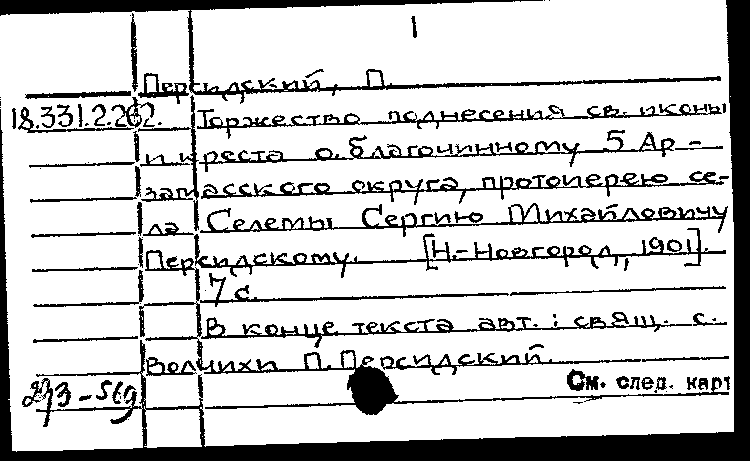 1
Персидский, П.
18.331.2.262. Торжество поднесения св. иконы
и креста о. благочинному 5 Ар-
замасского округа, протоиерею се-
ла Селемы Сергию Михайловичу
Персидскому. [Н.-Новгород, 1901].
7 с.
В конце текста авт.: свящ. с.
Волчихи П. Персидский.
См. след. карт